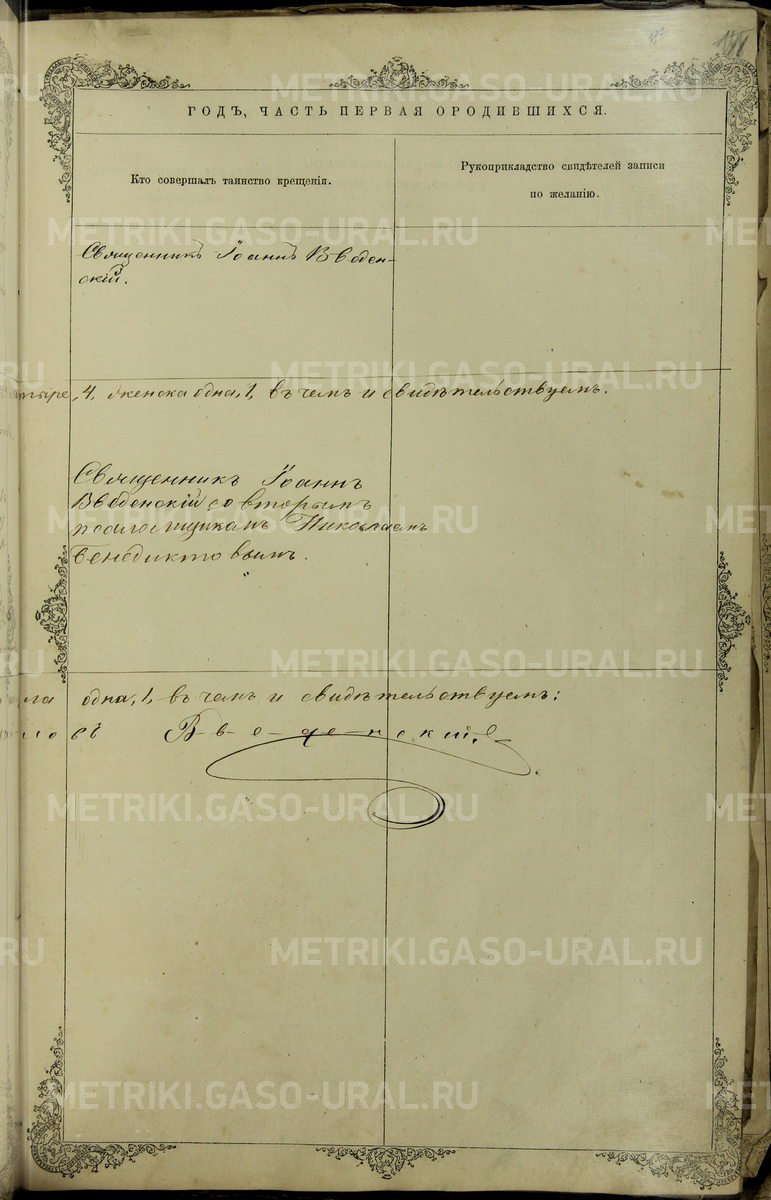 ГОДЪ, ЧАСТЬ ПЕРВАЯ ОРОДИВШИХСЯ.
Кто совершалъ таинство крещенія.
Рукоприкладство свидѣтелей записи
по желанію.
Священникъ Іоаннъ Введен-
скій.
тыре, 4, женска одна, 1, въ чемъ и свидѣтельствуемъ.
Священникъ Іоаннъ
Введенскій со вторымъ
псаломщикомъ Николаемъ
Бенедиктовымъ.
одна, 1, въ чемъ и свидѣтельствуемъ:
Введенскій.
METRIKI.GASO-URAL.RU